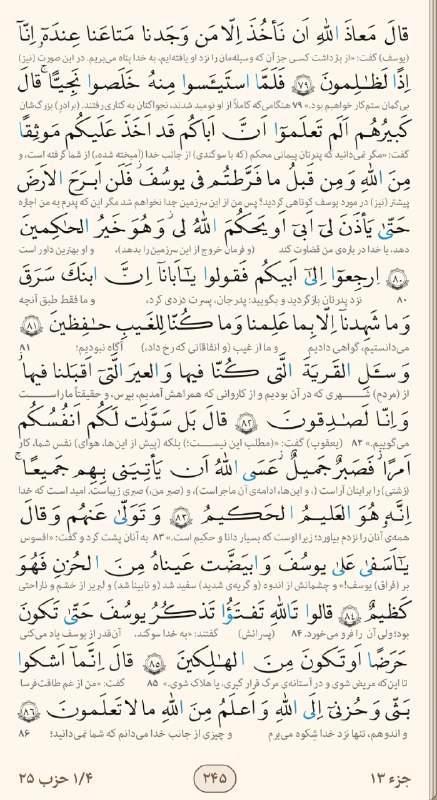 قالَ مَعاذَ اللّٰهِ اَن نَأخُذَ اِلّا مَن وَجَدنا مَتاعَنا عِندَهٓ، اِنّآ
(یوسف) گفت: «از بازداشت کسی جز آن که وسیله‌مان را نزد او یافته‌ایم، به خدا پناه می‌بریم. در این صورت (نیز)
اِذًا لَظٰلِمونَ ﴿٧٩﴾ فَلَمَّا استَیئَسوا مِنهُ خَلَصوا نَجیًّا ۖ قالَ
بی‌گمان ستم‌کار خواهیم بود.» ۷۹ هنگامی‌که کاملاً از او نومید شدند، نجواکنان به کناری رفتند. (برادر) بزرگ‌شان
کَبیرُهُم اَلَم تَعلَموٓا اَنَّ اَباکُم قَد اَخَذَ عَلَیکُم مَوثِقًا
گفت: «مگر نمی‌دانید که پدرتان پیمانی محکم (که با سوگندی) از جانب خدا (آمیخته شده،) از شما گرفته است، و
مِنَ اللّٰهِ وَ مِن قَبلُ ما فَرَّطتُم فی یوسُفَ ۖ فَلَن اَبرَحَ الاَرضَ
پیشتر (نیز) در مورد یوسف کوتاهی کردید؟ پس من از این سرزمین جدا نخواهم شد مگر این که پدرم به من اجازه
حَتّیٰ یَأذَنَ لیٓ اَبیٓ اَو یَحکُمَ اللّٰهُ لی ۖ وَ هُوَ خَیرُ الحٰکِمینَ
دهد، یا خدا در باره‌ی من قضاوت کند (و فرمان خروج از این سرزمین را بدهد)، و او بهترین داور است
﴿٨٠﴾ اِرجِعوٓا اِلیٰٓ اَبیکُم فَقولوا یٰٓاَبانآ اِنَّ ابنَکَ سَرَقَ
۸۰ نزد پدرتان بازگردید و بگویید: پدرجان، پسرت دزدی کرد، و ما فقط طبق آنچه
وَ ما شَهِدنآ اِلّا بِما عَلِمنا وَ ما کُنّا لِلغَیبِ حٰفِظینَ ﴿٨١﴾
می‌دانستیم، گواهی دادیم و ما از غیب (و اتفاقاتی که رخ داد،) آگاه نبودیم؛ ۸۱
وَ سئَلِ القَریَةَ الَّتی کُنّا فیها وَ العیرَ الَّتیٓ اَقبَلنا فیها ۖ
از (مردم) شهری که در آن بودیم و از کاروانی که همراهش آمدیم، بپرس، و حقیقتاً ما راست
وَ اِنّا لَصٰدِقونَ ﴿٨٢﴾ قالَ بَل سَوَّلَت لَکُم اَنفُسُکُم
می‌گوییم.» ۸۲ (یعقوب) گفت: «(مطلب این نیست؛) بلکه (پیش از این‌ها، هوای) نفس شما، کار
اَمرًا ۖ فَصَبرٌ جَمیلٌ ۖ عَسَی اللّٰهُ اَن یَأتِیَنی بِهِم جَمیعًا ۚ
(زشتی) را برایتان آراست (. و این‌ها، ادامه‌ی آن ماجراست)، و (صبر من،) صبری زیباست. امید است که خدا
اِنَّهٗ هُوَ العَلیمُ الحَکیمُ ﴿٨٣﴾ وَ تَوَلّیٰ عَنهُم وَ قالَ
همه‌ی آنان را نزدم بیاورد؛ زیرا اوست که بسیار دانا و حکیم است.» ۸۳ به آنان پشت کرد و گفت: «افسوس
یٰٓاَسَفیٰ عَلیٰ یوسُفَ وَ ابیَضَّت عَیناهُ مِنَ الحُزنِ فَهُوَ
بر (فراق) یوسف!» و چشمانش از اندوه (و گریه‌ی شدید) سفید شد (و نابینا شد) و لبریز از خشم و ناراحتی
کَظیمٌ ﴿٨٤﴾ قالوا تَاللّٰهِ تَفتَؤُا تَذکُرُ یوسُفَ حَتّیٰ تَکونَ
بود؛ ولی آن را فرو می‌خورد. ۸۴ (پسرانش) گفتند: «به خدا سوگند، آن‌قدر از یوسف یاد می‌کنی
حَرَضًا اَو تَکونَ مِنَ الهٰلِکینَ ﴿٨٥﴾ قالَ اِنَّمآ اَشکوا
تا این‌که مریض شوی و در آستانه‌ی مرگ قرار گیری، یا هلاک شوی.» ۸۵ گفت: «من از غم طاقت‌فرسا
بَثّی وَ حُزنیٓ اِلَی اللّٰهِ وَ اَعلَمُ مِنَ اللّٰهِ ما لا تَعلَمونَ ﴿٨٦﴾
و اندوهم، تنها نزد خدا شِکوه می‌برم و چیزی از جانب خدا می‌دانم که شما نمی‌دانید؛ ۸۶
جزء ۱۳
۲۴۵
۱/۴ حزب ۲۵